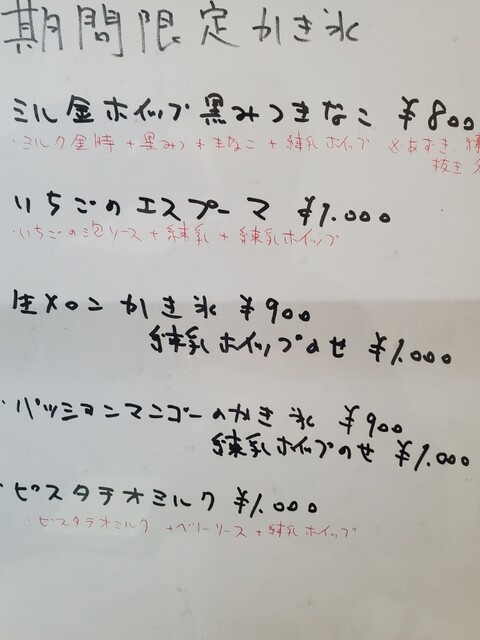 期間限定かき氷
ミル金ホイップ黒みつきなこ ¥800
・ミルク金時+黒みつ+きなこ+練乳ホイップ ※あずき、練
抜き
いちごのエスプーマ ¥1.000
・いちごの泡ソース+練乳+練乳ホイップ
生メロンかき氷 ¥900
練乳ホイップのせ ¥1.000
・パッションマンゴーのかき氷 ¥900
練乳ホイップのせ ¥1.000
・ピスタチオミルク ¥1.000
・ピスタチオミルク+ベリーソース+練乳ホイップ